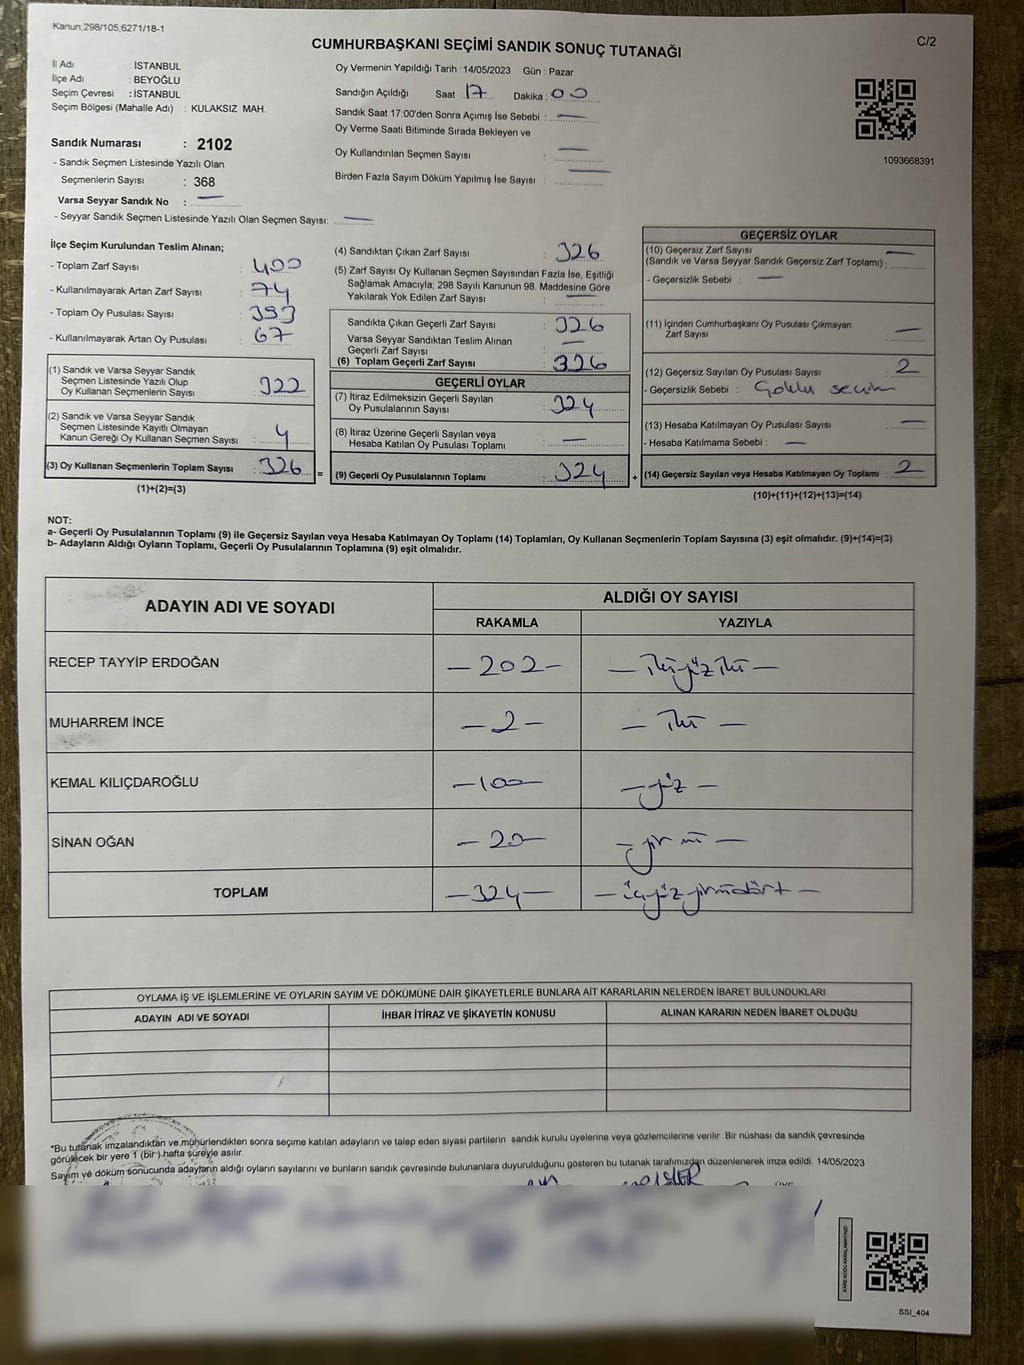 Kanun;298/105,6271/18-1
C/2
CUMHURBAŞKANI SEÇİMİ SANDIK SONUÇ TUTANAĞI
İl Adı : İSTANBUL
İlçe Adı : BEYOĞLU
Seçim Çevresi : İSTANBUL
Seçim Bölgesi (Mahalle Adı) : KULAKSIZ MAH.
Sandık Numarası : 2102
- Sandık Seçmen Listesinde Yazılı Olan
Seçmenlerin Sayısı : 368
Varsa Seyyar Sandık No : —
- Seyyar Sandık Seçmen Listesinde Yazılı Olan Seçmen Sayısı: —
Oy Vermenin Yapıldığı Tarih : 14/05/2023 Gün : Pazar
Sandığın Açıldığı Saat : 17 Dakika : 00
Sandık Saat 17:00'den Sonra Açımış İse Sebebi : —
Oy Verme Saati Bitiminde Sırada Bekleyen ve
Oy Kullandırılan Seçmen Sayısı : —
Birden Fazla Sayım Döküm Yapılmış İse Sayısı : —
1093668391
İlçe Seçim Kurulundan Teslim Alınan;
- Toplam Zarf Sayısı : 400
- Kullanılmayarak Artan Zarf Sayısı : 74
- Toplam Oy Pusulası Sayısı : 393
- Kullanılmayarak Artan Oy Pusulası : 67
(1) Sandık ve Varsa Seyyar Sandık
Seçmen Listesinde Yazılı Olup
Oy Kullanan Seçmenlerin Sayısı : 322
(2) Sandık ve Varsa Seyyar Sandık
Seçmen Listesinde Kayıtlı Olmayan
Kanun Gereği Oy Kullanan Seçmen Sayısı : 4
(3) Oy Kullanan Seçmenlerin Toplam Sayısı : 326
(1)+(2)=(3)
(4) Sandıktan Çıkan Zarf Sayısı : 326
(5) Zarf Sayısı Oy Kullanan Seçmen Sayısından Fazla İse, Eşitliği
Sağlamak Amacıyla, 298 Sayılı Kanunun 98. Maddesine Göre
Yakılarak Yok Edilen Zarf Sayısı : —
Sandıkta Çıkan Geçerli Zarf Sayısı : 326
Varsa Seyyar Sandıktan Teslim Alınan
Geçerli Zarf Sayısı : —
(6) Toplam Geçerli Zarf Sayısı : 326
GEÇERLİ OYLAR
(7) İtiraz Edilmeksizin Geçerli Sayılan
Oy Pusulalarının Sayısı : 324
(8) İtiraz Üzerine Geçerli Sayılan veya
Hesaba Katılan Oy Pusulası Toplamı : —
= (9) Geçerli Oy Pusulalarının Toplamı : 324
GEÇERSİZ OYLAR
(10) Geçersiz Zarf Sayısı : —
(Sandık ve Varsa Seyyar Sandık Geçersiz Zarf Toplamı) :
- Geçersizlik Sebebi : —
(11) İçinden Cumhurbaşkanı Oy Pusulası Çıkmayan
Zarf Sayısı : —
(12) Geçersiz Sayılan Oy Pusulası Sayısı : 2
- Geçersizlik Sebebi : Çoklu seçim
(13) Hesaba Katılmayan Oy Pusulası Sayısı : —
- Hesaba Katılmama Sebebi : —
+ (14) Geçersiz Sayılan veya Hesaba Katılmayan Oy Toplamı : 2
(10)+(11)+(12)+(13)=(14)
NOT:
a- Geçerli Oy Pusulalarının Toplamı (9) ile Geçersiz Sayılan veya Hesaba Katılmayan Oy Toplamı (14) Toplamları, Oy Kullanan Seçmenlerin Toplam Sayısına (3) eşit olmalıdır. (9)+(14)=(3)
b- Adayların Aldığı Oyların Toplamı, Geçerli Oy Pusulalarının Toplamına (9) eşit olmalıdır.
ADAYIN ADI VE SOYADI
ALDIĞI OY SAYISI
RAKAMLA YAZIYLA
RECEP TAYYİP ERDOĞAN — 202 — — ikiyüz iki —
MUHARREM İNCE — 2 — — iki —
KEMAL KILIÇDAROĞLU — 100 — — yüz —
SİNAN OĞAN — 20 — — yirmi —
TOPLAM — 324 — — üçyüz yirmidört —
OYLAMA İŞ VE İŞLEMLERİNE VE OYLARIN SAYIM VE DÖKÜMÜNE DAİR ŞİKAYETLERLE BUNLARA AİT KARARLARIN NELERDEN İBARET BULUNDUKLARI
ADAYIN ADI VE SOYADI İHBAR İTİRAZ VE ŞİKAYETİN KONUSU ALINAN KARARIN NEDEN İBARET OLDUĞU
*Bu tutanak imzalandıktan ve mühürlendikten sonra seçime katılan adayların ve talep eden siyasi partilerin sandık kurulu üyelerine veya gözlemcilerine verilir. Bir nüshası da sandık çevresinde
görülecek bir yere 1 (bir) hafta süreyle asılır.
Sayım ve döküm sonucunda adayların aldığı oyların sayılarını ve bunların sandık çevresinde bulunanlara duyurulduğunu gösteren bu tutanak tarafımızdan düzenlenerek imza edildi. 14/05/2023
SSI_404